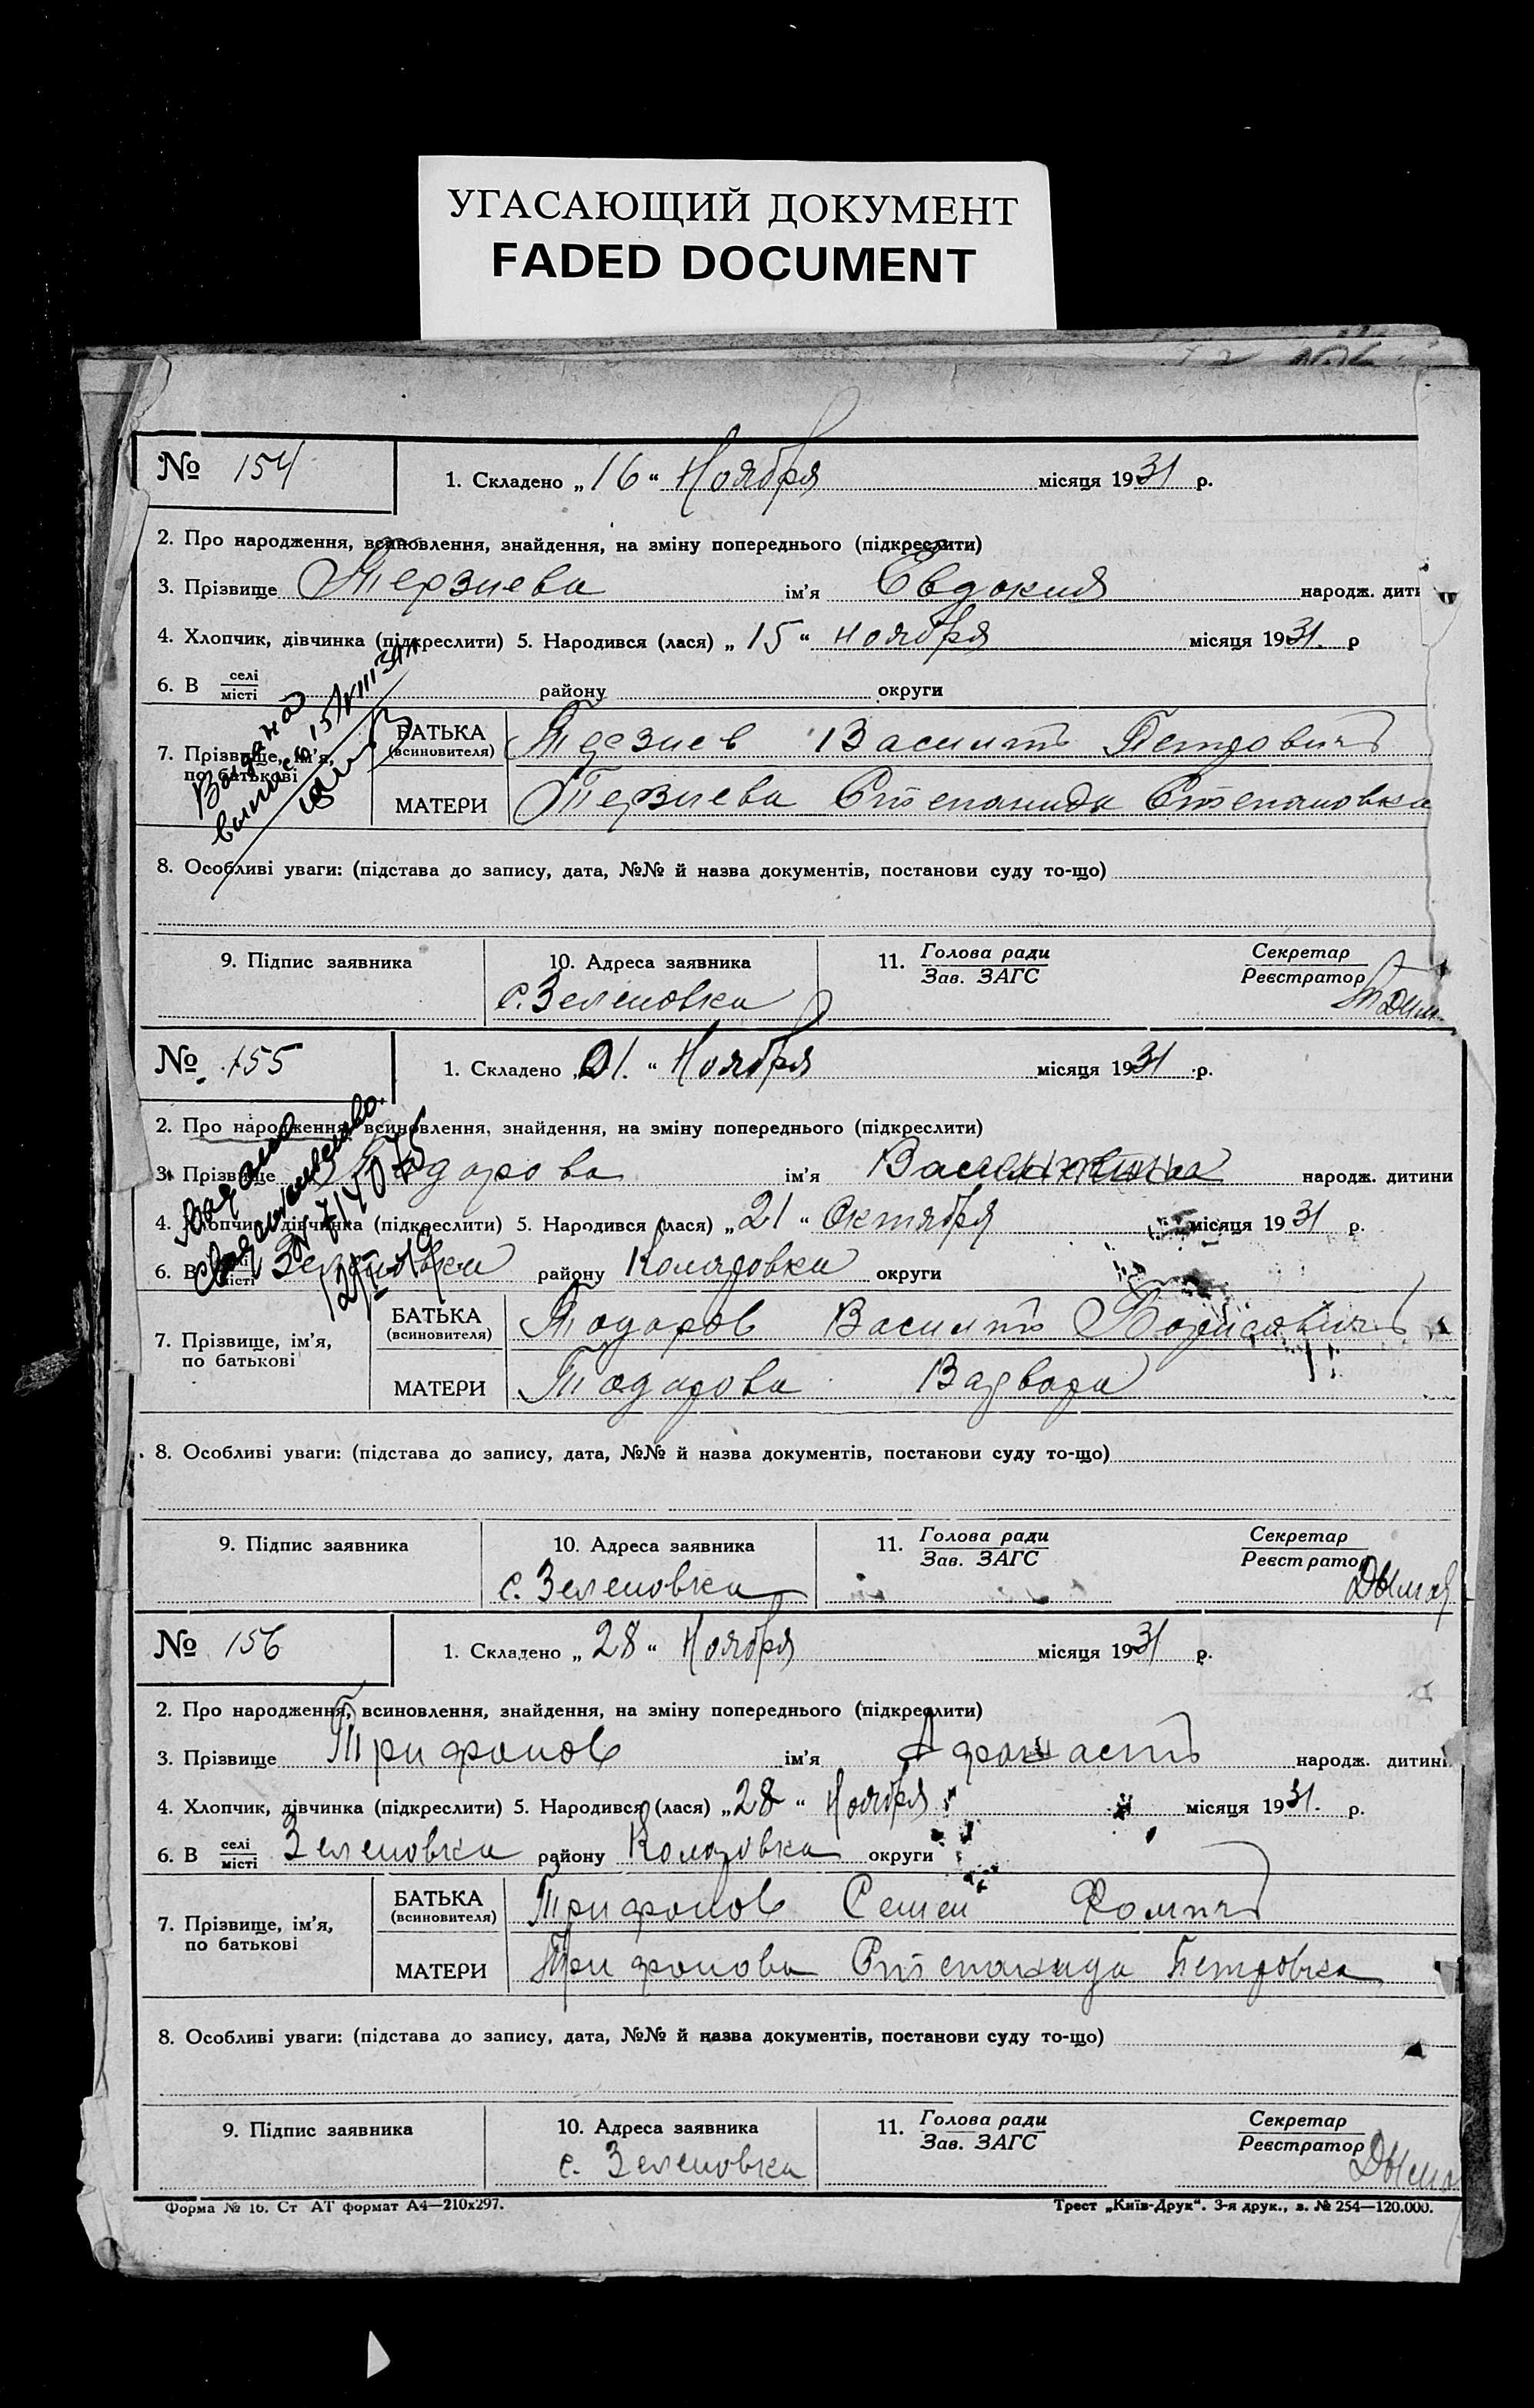 УГАСАЮЩИЙ ДОКУМЕНТ
FADED DOCUMENT
№ 154
1. Складено „16“ Ноября місяця 1931 р.
2. Про народження, всиновлення, знайдення, на зміну попереднього (підкреслити)
3. Прізвище Терзиева ім'я Евдокия народж. дити
4. Хлопчик, дівчинка (підкреслити) 5. Народився (лася) „15“ ноября місяця 1931. р
6. В селі місті району округи
Выдана
выпись 15/VIII 31
7. Прізвище, ім'я, по батькові
БАТЬКА (всиновителя) Терзиев Василий Петрович
МАТЕРИ Терзиева Степанида Степановка
8. Особливі уваги: (підстава до запису, дата, №№ й назва документів, постанови суду то-що)
9. Підпис заявника
10. Адреса заявника
с. Зеленовка
11. Голова ради Зав. ЗАГС
Секретар Реєстратор
№ 155
1. Складено „21.“ Ноября місяця 1931 р.
2. Про народження, всиновлення, знайдення, на зміну попереднього (підкреслити)
3. Прізвище Тодорова ім'я народж. дитини
4. Хлопчик, дівчинка (підкреслити) 5. Народився (лася) „21“ Октября місяця 1931 р.
6. В селі місті Зеленовка району Коларовка округи
7. Прізвище, ім'я, по батькові
БАТЬКА (всиновителя) Тодоров Василий Борисович
МАТЕРИ Тодорова Варвара
8. Особливі уваги: (підстава до запису, дата, №№ й назва документів, постанови суду то-що)
9. Підпис заявника
10. Адреса заявника
с. Зеленовка
11. Голова ради Зав. ЗАГС
Секретар Реєстратор
№ 156
1. Складено „28“ Ноября місяця 1931 р.
2. Про народження, всиновлення, знайдення, на зміну попереднього (підкреслити)
3. Прізвище Трифонов ім'я народж. дитин
4. Хлопчик, дівчинка (підкреслити) 5. Народився (лася) „28“ Ноября місяця 1931. р.
6. В селі місті Зеленовка району Коларовка округи
7. Прізвище, ім'я, по батькові
БАТЬКА (всиновителя) Трифонов Семен Фомич
МАТЕРИ Трифонова Степанида Петровка
8. Особливі уваги: (підстава до запису, дата, №№ й назва документів, постанови суду то-що)
9. Підпис заявника
10. Адреса заявника
с. Зеленовка
11. Голова ради Зав. ЗАГС
Секретар Реєстратор
Форма № 16. Ст АТ формат А4—210х297.
Трест „Київ-Друк“. 3-я друк., з. № 254—120.000.